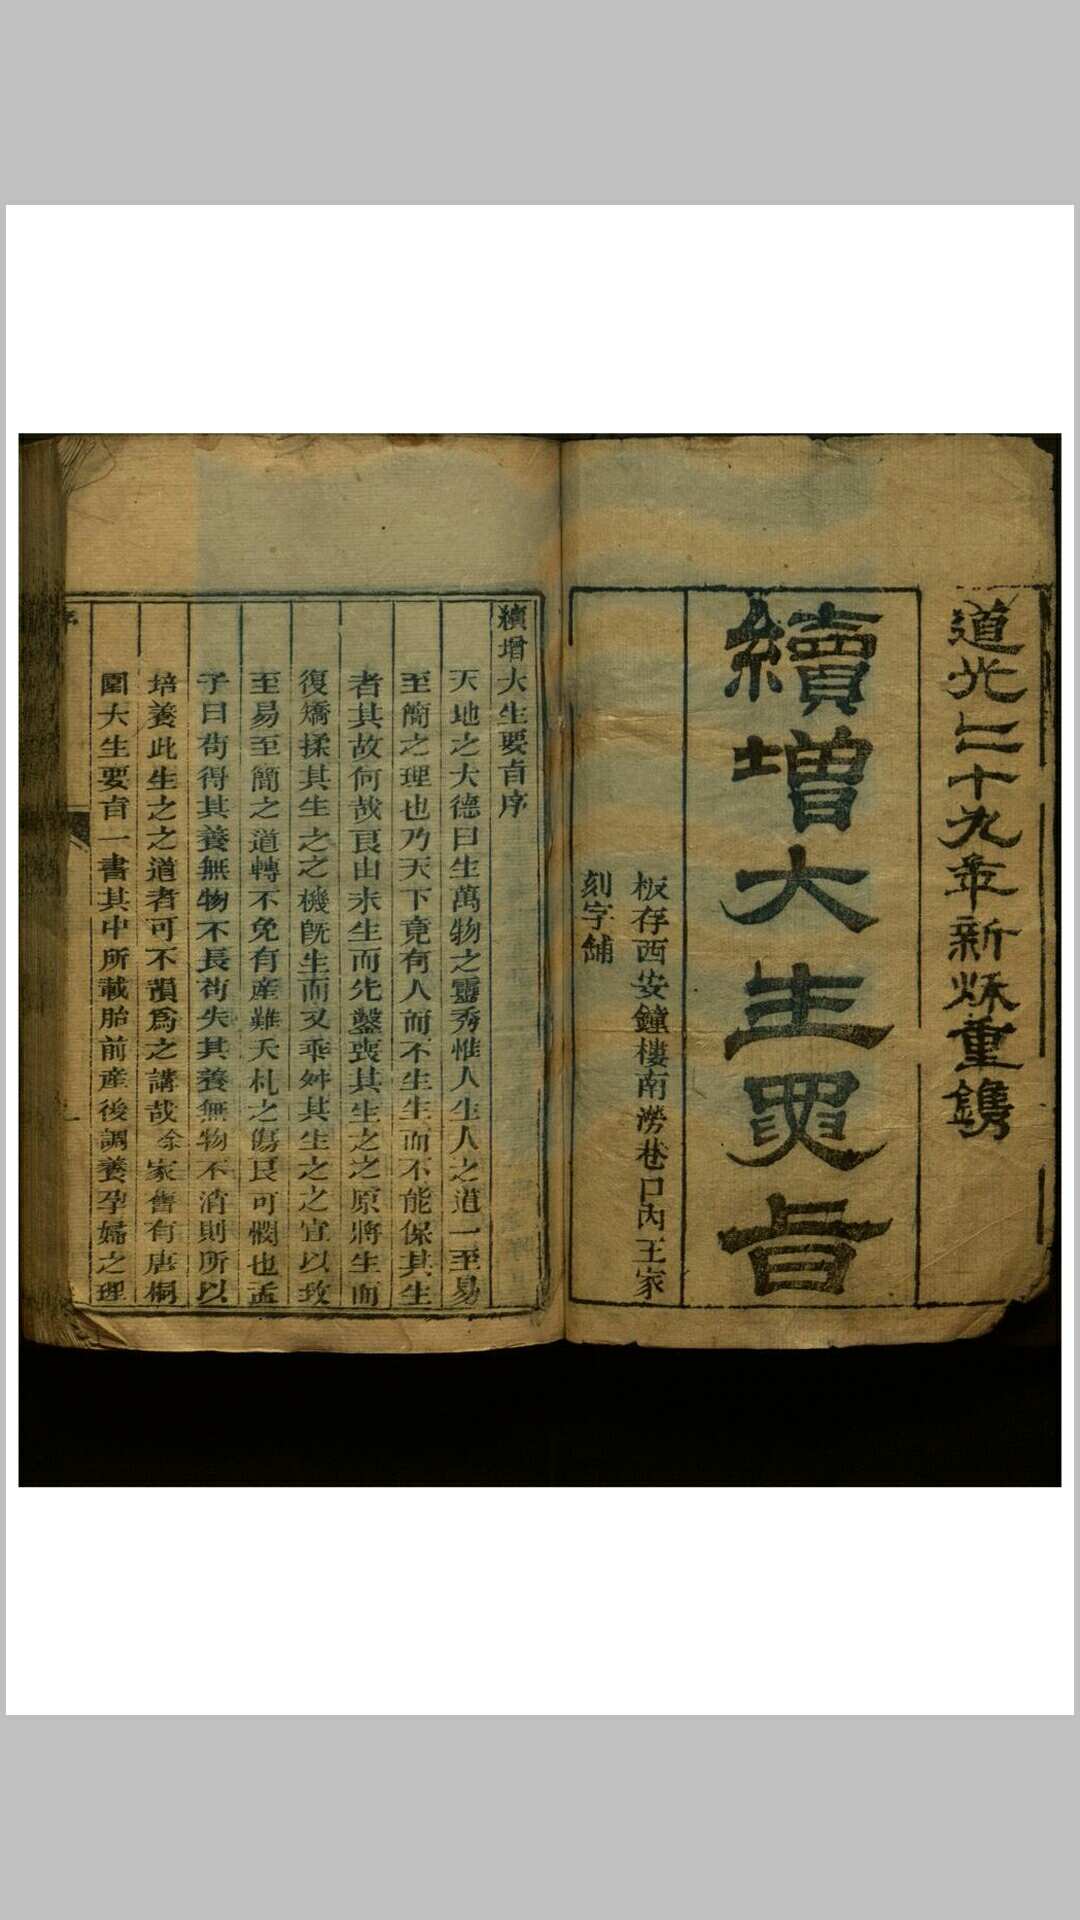 道光二十九年新秌重鐫
續增大生要旨
板存西安鐘樓南澇巷口內王家
刻字鋪
續增大生要㫖序
天地之大德曰生萬物之靈秀惟人生人之道一至易
至簡之理也乃天下竟有人而不生生而不能保其生
者其故何哉良由未生而先鑿喪其生之之原將生而
復矯揉其生之之機旣生而又乖舛其生之之宜以致
至易至簡之道轉不免有產難夭札之傷良可憫也孟
子曰苟得其養無物不長苟失其養無物不消則所以
培養此生之之道者可不預爲之講哉 家舊有唐桐
園大生要㫖一書其中所載胎前產後調養孕婦之理
序